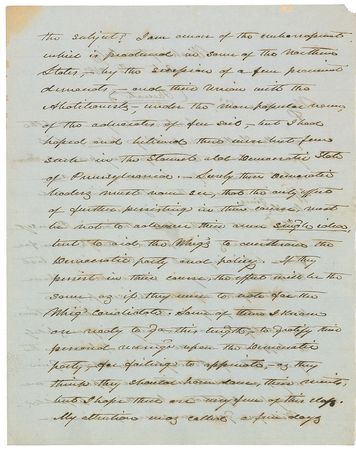 the subject? I am aware of the embarrassment
which is produced in some of the Northern
States, – by the secession of a few prominent
democrats, – and their Union with the
Abolitionists, – under the more popular name
of the advocates of free soil, – but I had
hoped and believed there were but few
such in the Staunch old Democratic State
of Pennsylvania. – Surely these Democratic
leaders must now see, that the only effect
of further persisting in their course must
be not to advance their own single idea
but to aid the Whigs to overthrow the
Democratic party and policy. If they
persist in their course the effect will be the
same as if they were to vote for the
Whig candidate. Some of them I know
are ready to go this length, to gratify their
personal revenge upon the Democratic
party, for failing to appreciate, as they
think they should have done, their merits,
but I hope there are very few of this class.
My attention was called a few days